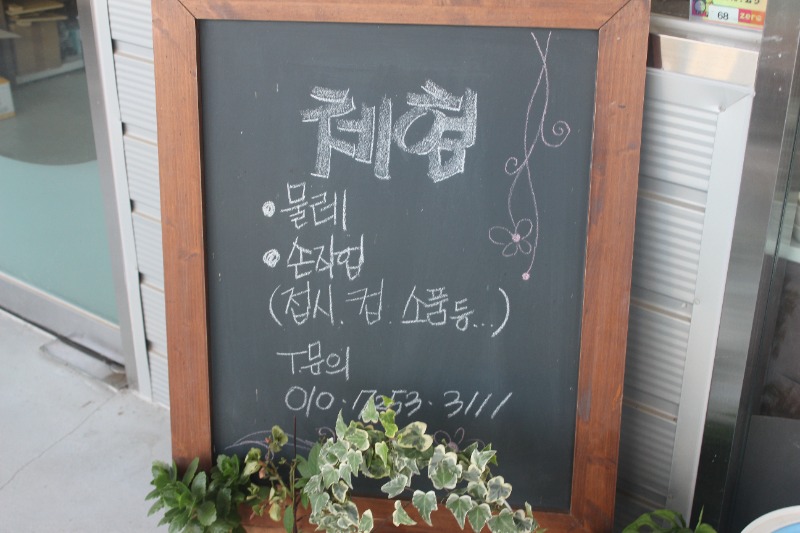 체험
• 물레
• 손작업
(접시. 컵. 소품등...)
T.문의
68 zero